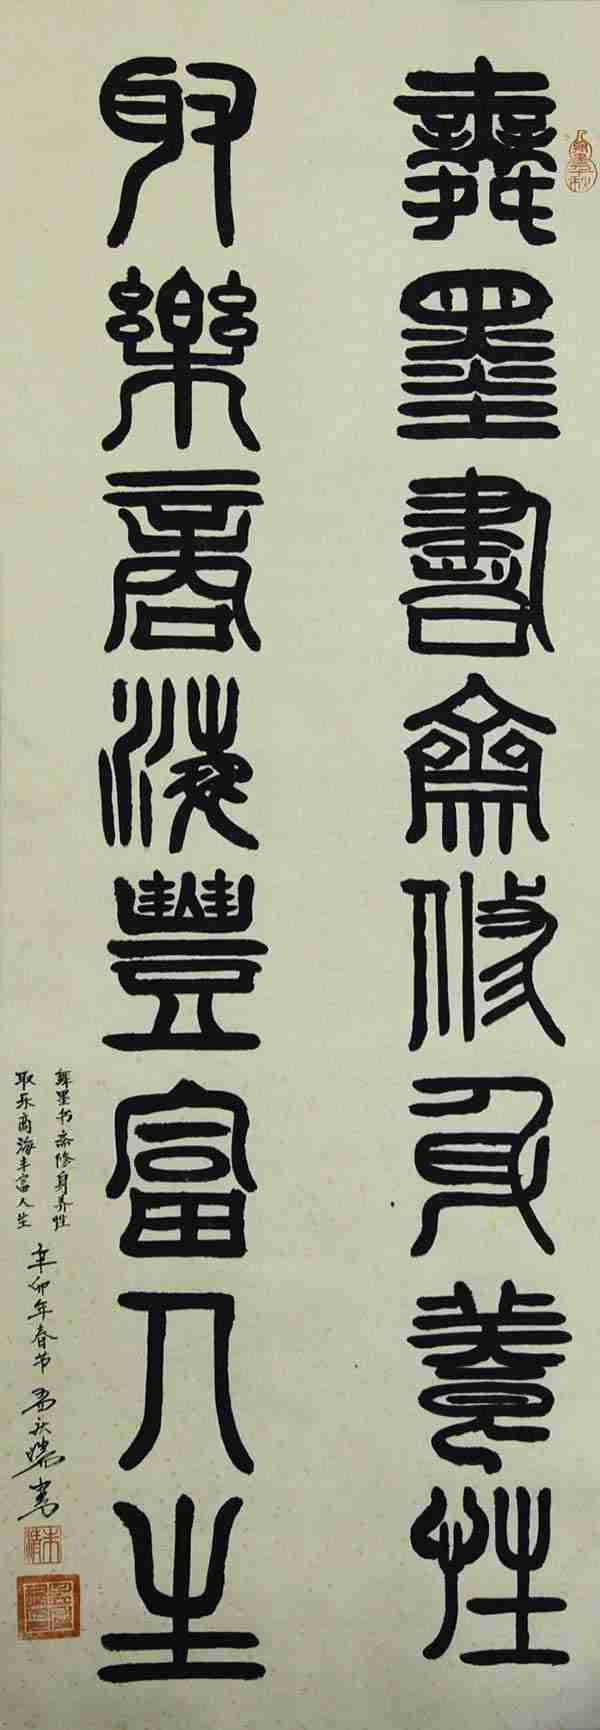 舞墨書齋修身養性
取樂商海豐富人生
舞墨书斋修身养性
取乐商海丰富人生
辛卯年春节